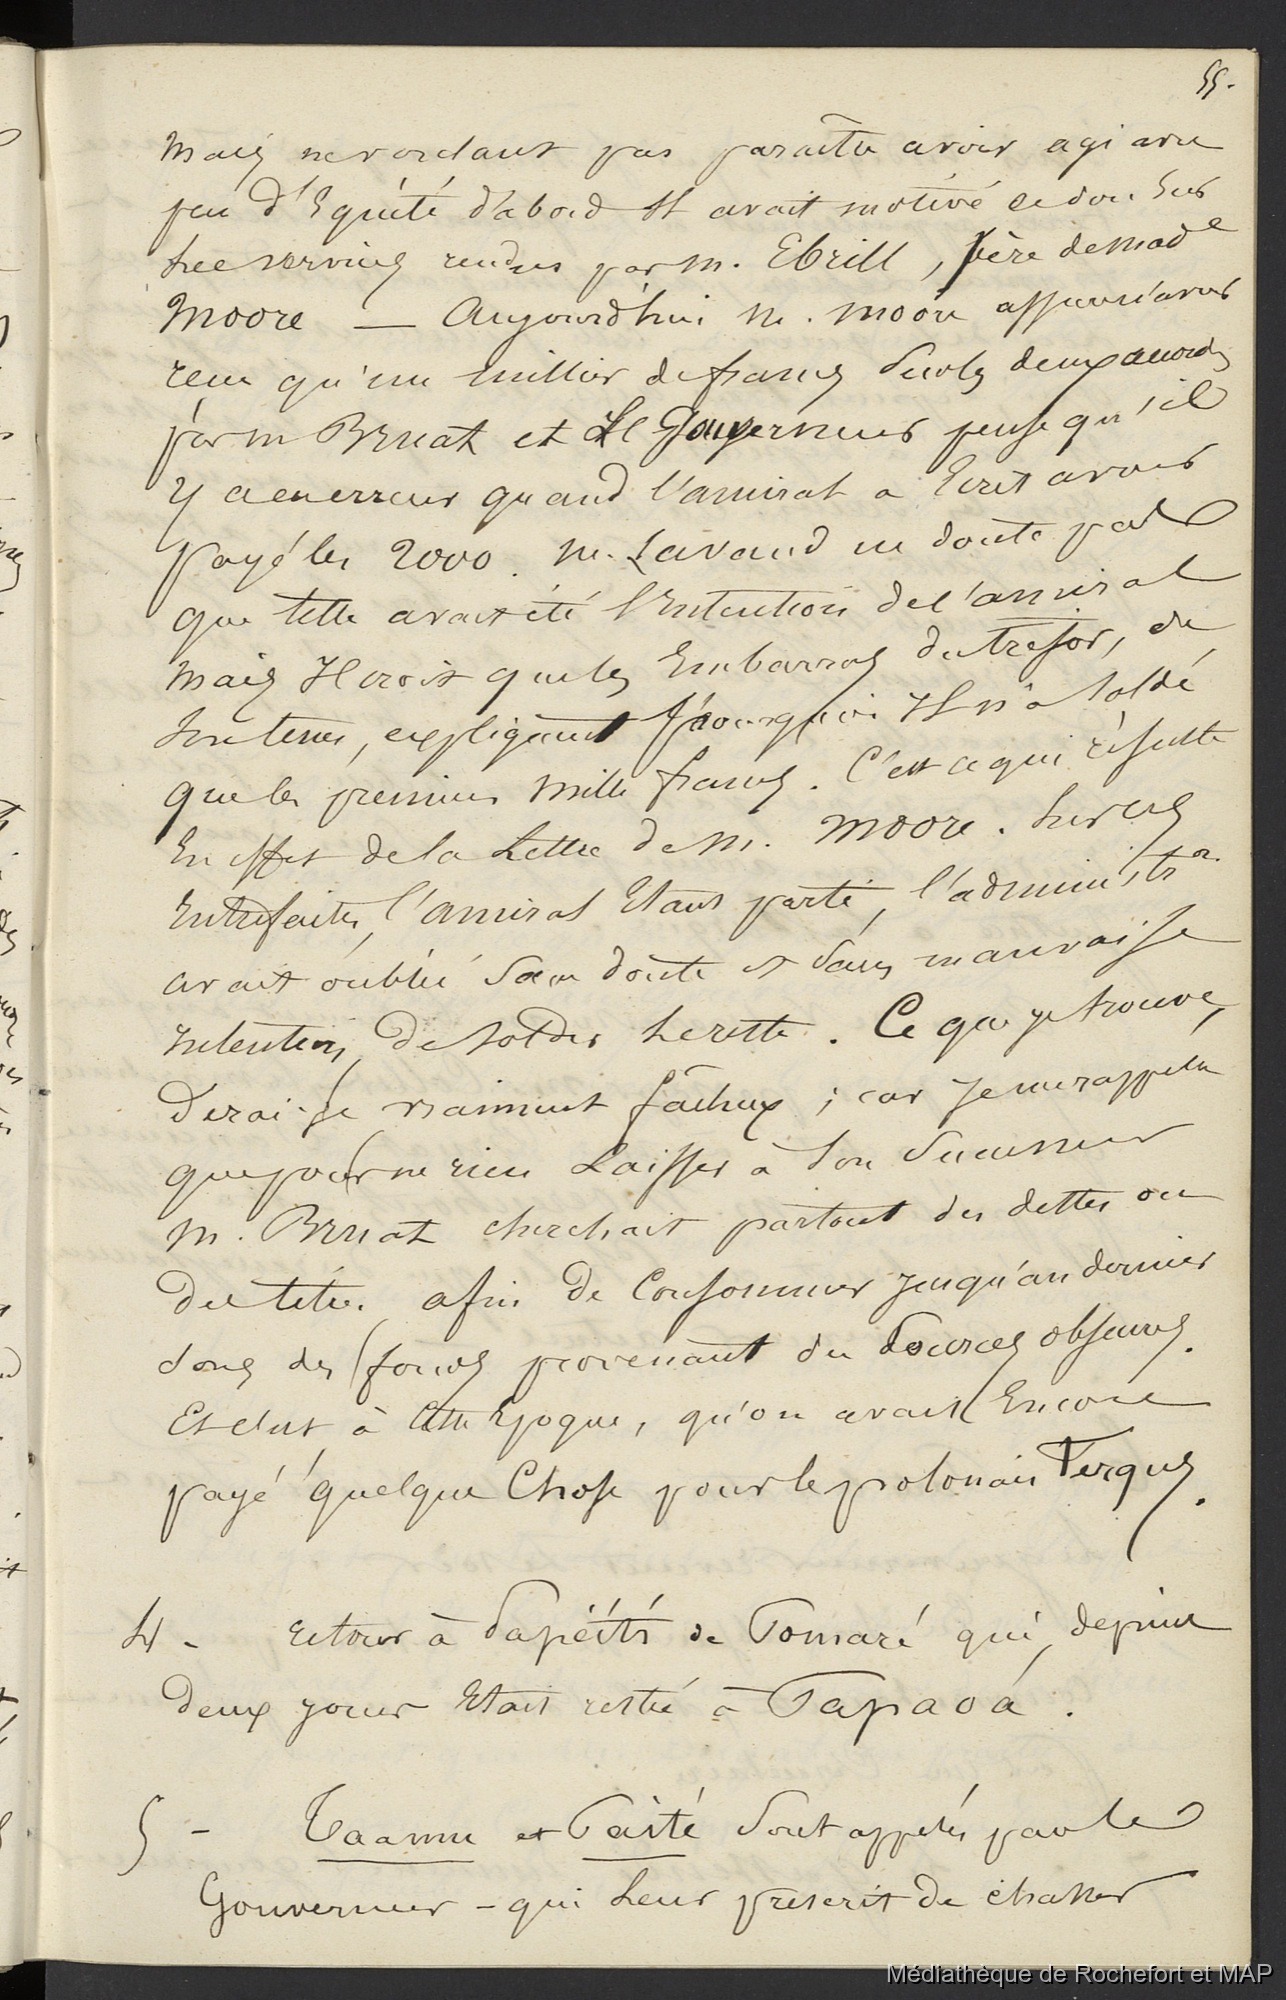 55.
mais ne voulant pas paraître avoir agi avec
peu d'Equité d'abord Il avait motivé ce don Sur
Les services rendus par M. Ebrill, père de Made
Moore — Aujourd'hui M. Moore assure n'avoir
reçu qu'un millier de francs Sur les deux accordés
par M Bruat et Le Gouverneur pense qu'il
y a eu erreur quand l'amiral a Ecrit avoir
payé les 2000. M. Lavaud ne doute pas
que telle avait été l'Intention de l'amiral
mais Il croit que les Embarras du trésor, de
Son tems, expliquent pourquoi Il n'a soldé
que les premiers mille francs. C'est ce qui résulte
En effet de la Lettre de M. Moore. Sur ces
Entrefaites, l'amiral Etant parti, l'administron
avait oublié Sans doute et Sans mauvaise
Intention, de solder Le reste. Ce que je trouve,
Dirai-Je vraiment fâcheux ; car Je me rappelle
que pour ne rien Laisser à Son Successeur
M. Bruat cherchait partout des dettes ou
des têtes afin de Consommer jusqu'au dernier
sous des fonds provenant de Sources obscures.
Et c'est à Cette Epoque, qu'on avait Encore
payé quelque Chose pour le polonais Fergus.
4 - retour à Papéïti de Pomaré qui, depuis
deux jours Etait restée à Papaoá.
5 - Taamu et Païté Sont appelés par le
Gouverneur - qui Leur prescrit de chasser
Médiathèque de Rochefort et MAP